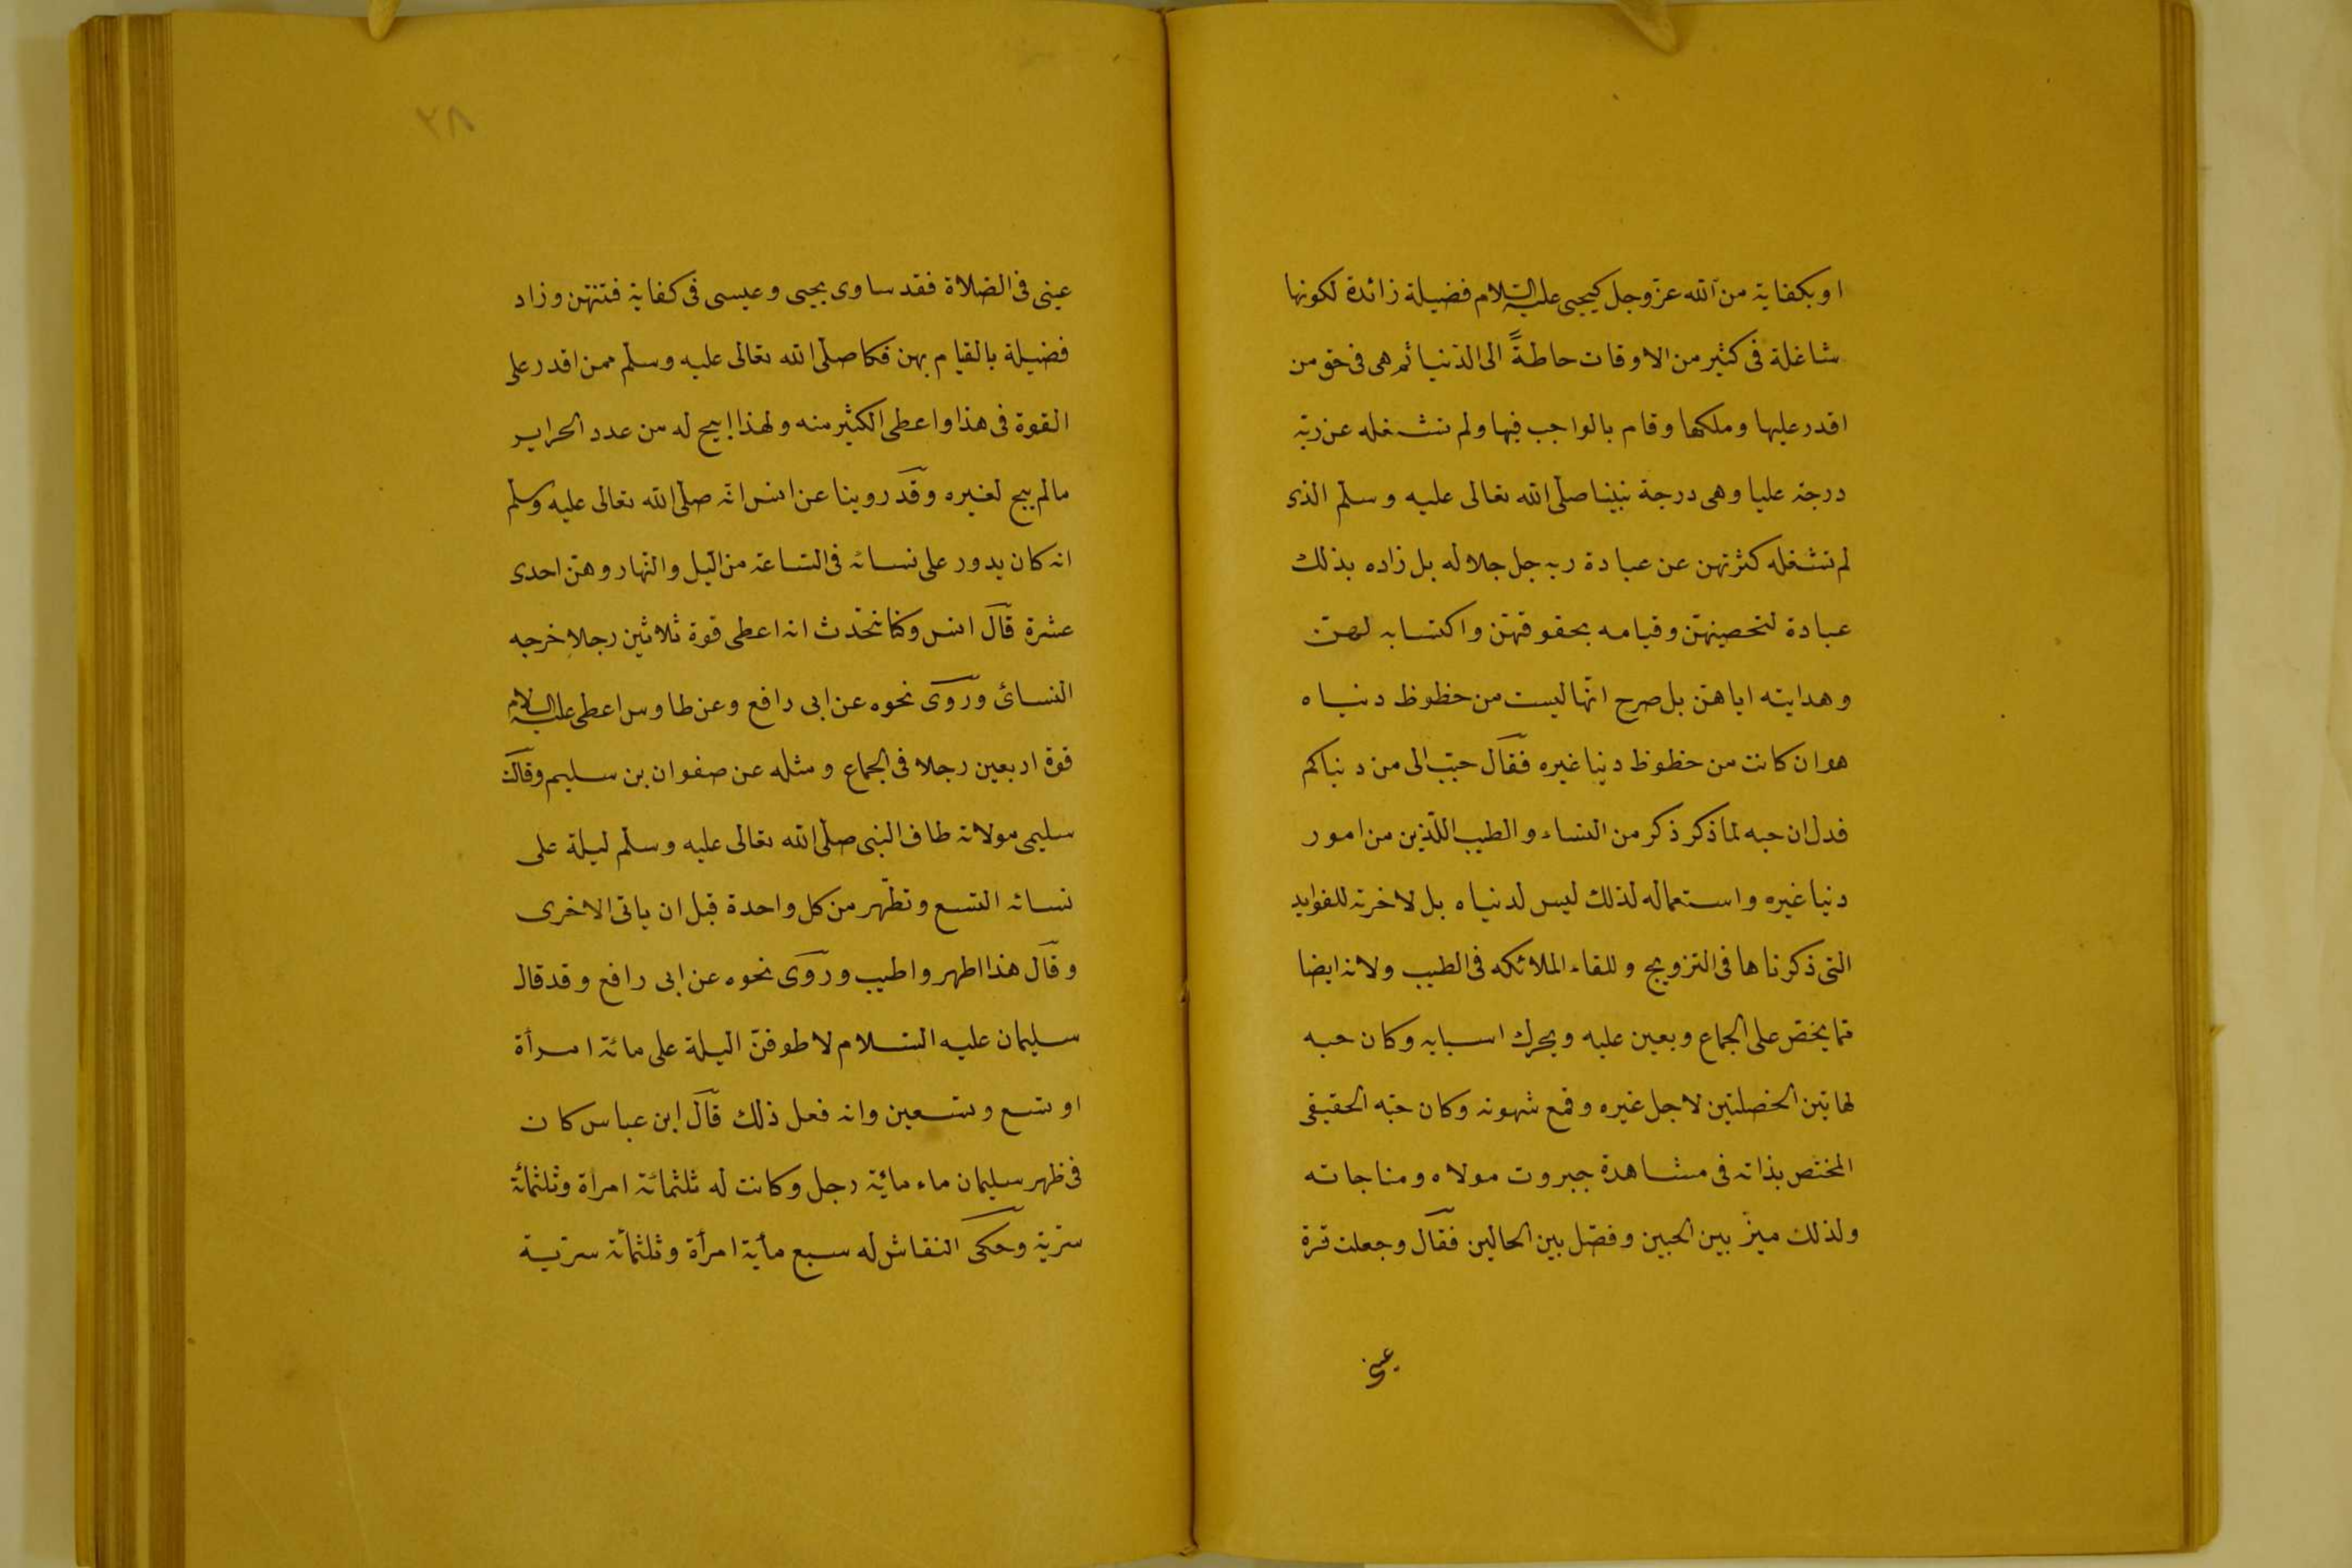 او بكفاية من الله عز وجل كيحيى عليه السلام فضيلة زائدة لكونها
شاغلة فى كثير من الاوقات حاطةً الى الدنيا ثم هى فى حق من
اقدر عليها وملكها وقام بالواجب فيها ولم تشغله عن ربّه
درجة عليا وهى درجة نبينا صلّى الله تعالى عليه وسلّم الذى
لم تشغله كثرتهن عن عبادة ربه جل جلاله بل زاده بذلك
عبادة لتحصينهنّ وقيامه بحقوقهنّ واكتسابه لهنّ
وهدايته اياهنّ بل صرح انّها ليست من حظوظ دنياه
هو ان كانت من حظوظ دنيا غيره فقال حبّب الى من دنياكم
فدل ان حبه لما ذكر ذكر من النساء والطيب اللّذين من امور
دنيا غيره واستعماله لذلك ليس لدنياه بل لاخرته للفوايد
التى ذكرناها فى التزويج وللقاء الملائكه فى الطيب ولانه ايضا
مما يحض على الجماع ويعين عليه ويحرك اسبابه وكان حبه
لهاتين الخصلتين لاجل غيره وقمع شهوته وكان حبّه الحقيقى
المختص بذاته فى مشاهدة جبروت مولاه ومناجاته
ولذلك ميّز بين الحبين وفصّل بين الحالين فقال وجعلت قرة
عينى
٢٨
عينى فى الصّلاة فقد ساوى يحيى وعيسى فى كفاية فتنتهن وزاد
فضيلة بالقيام بهن فكا صلّى الله تعالى عليه وسلّم ممن اقدر على
القوة فى هذا واعطى الكثير منه ولهذا ابيح له من عدد الحراير
مالم يبح لغيره وقد روينا عن انس انّه صلّى الله تعالى عليه وسلّم
انه كان يدور على نسائه فى السّاعة من اليل والنّهار وهنّ احدى
عشرة قال انس وكنا نتحدّث انه اعطى قوة ثلاثين رجلا خرجه
النسائى وروى نحوه عن ابى رافع وعن طاوس اعطى عليه السلام
قوة اربعين رجلا فى الجماع ومثله عن صفوان بن سليم وقالت
سليمى مولاته طاف النبى صلّى الله تعالى عليه وسلّم ليلة على
نسائه التسع وتطّهر من كل واحدة قبل ان ياتى الاخرى
وقال هذا اطهر واطيب وروى نحوه عن ابى رافع وقد قال
سليمان عليه السّلام لاطوفنّ اليلة على مائة امرأة
او تسع وتسعين وانه فعل ذلك قال ابن عباس كان
فى ظهر سليمان ماء مائة رجل وكانت له ثلثمائة امراة وثلثمائة
سرّية وحكى النقاش له سبع مأية امرأة وثلثمائة سرّية